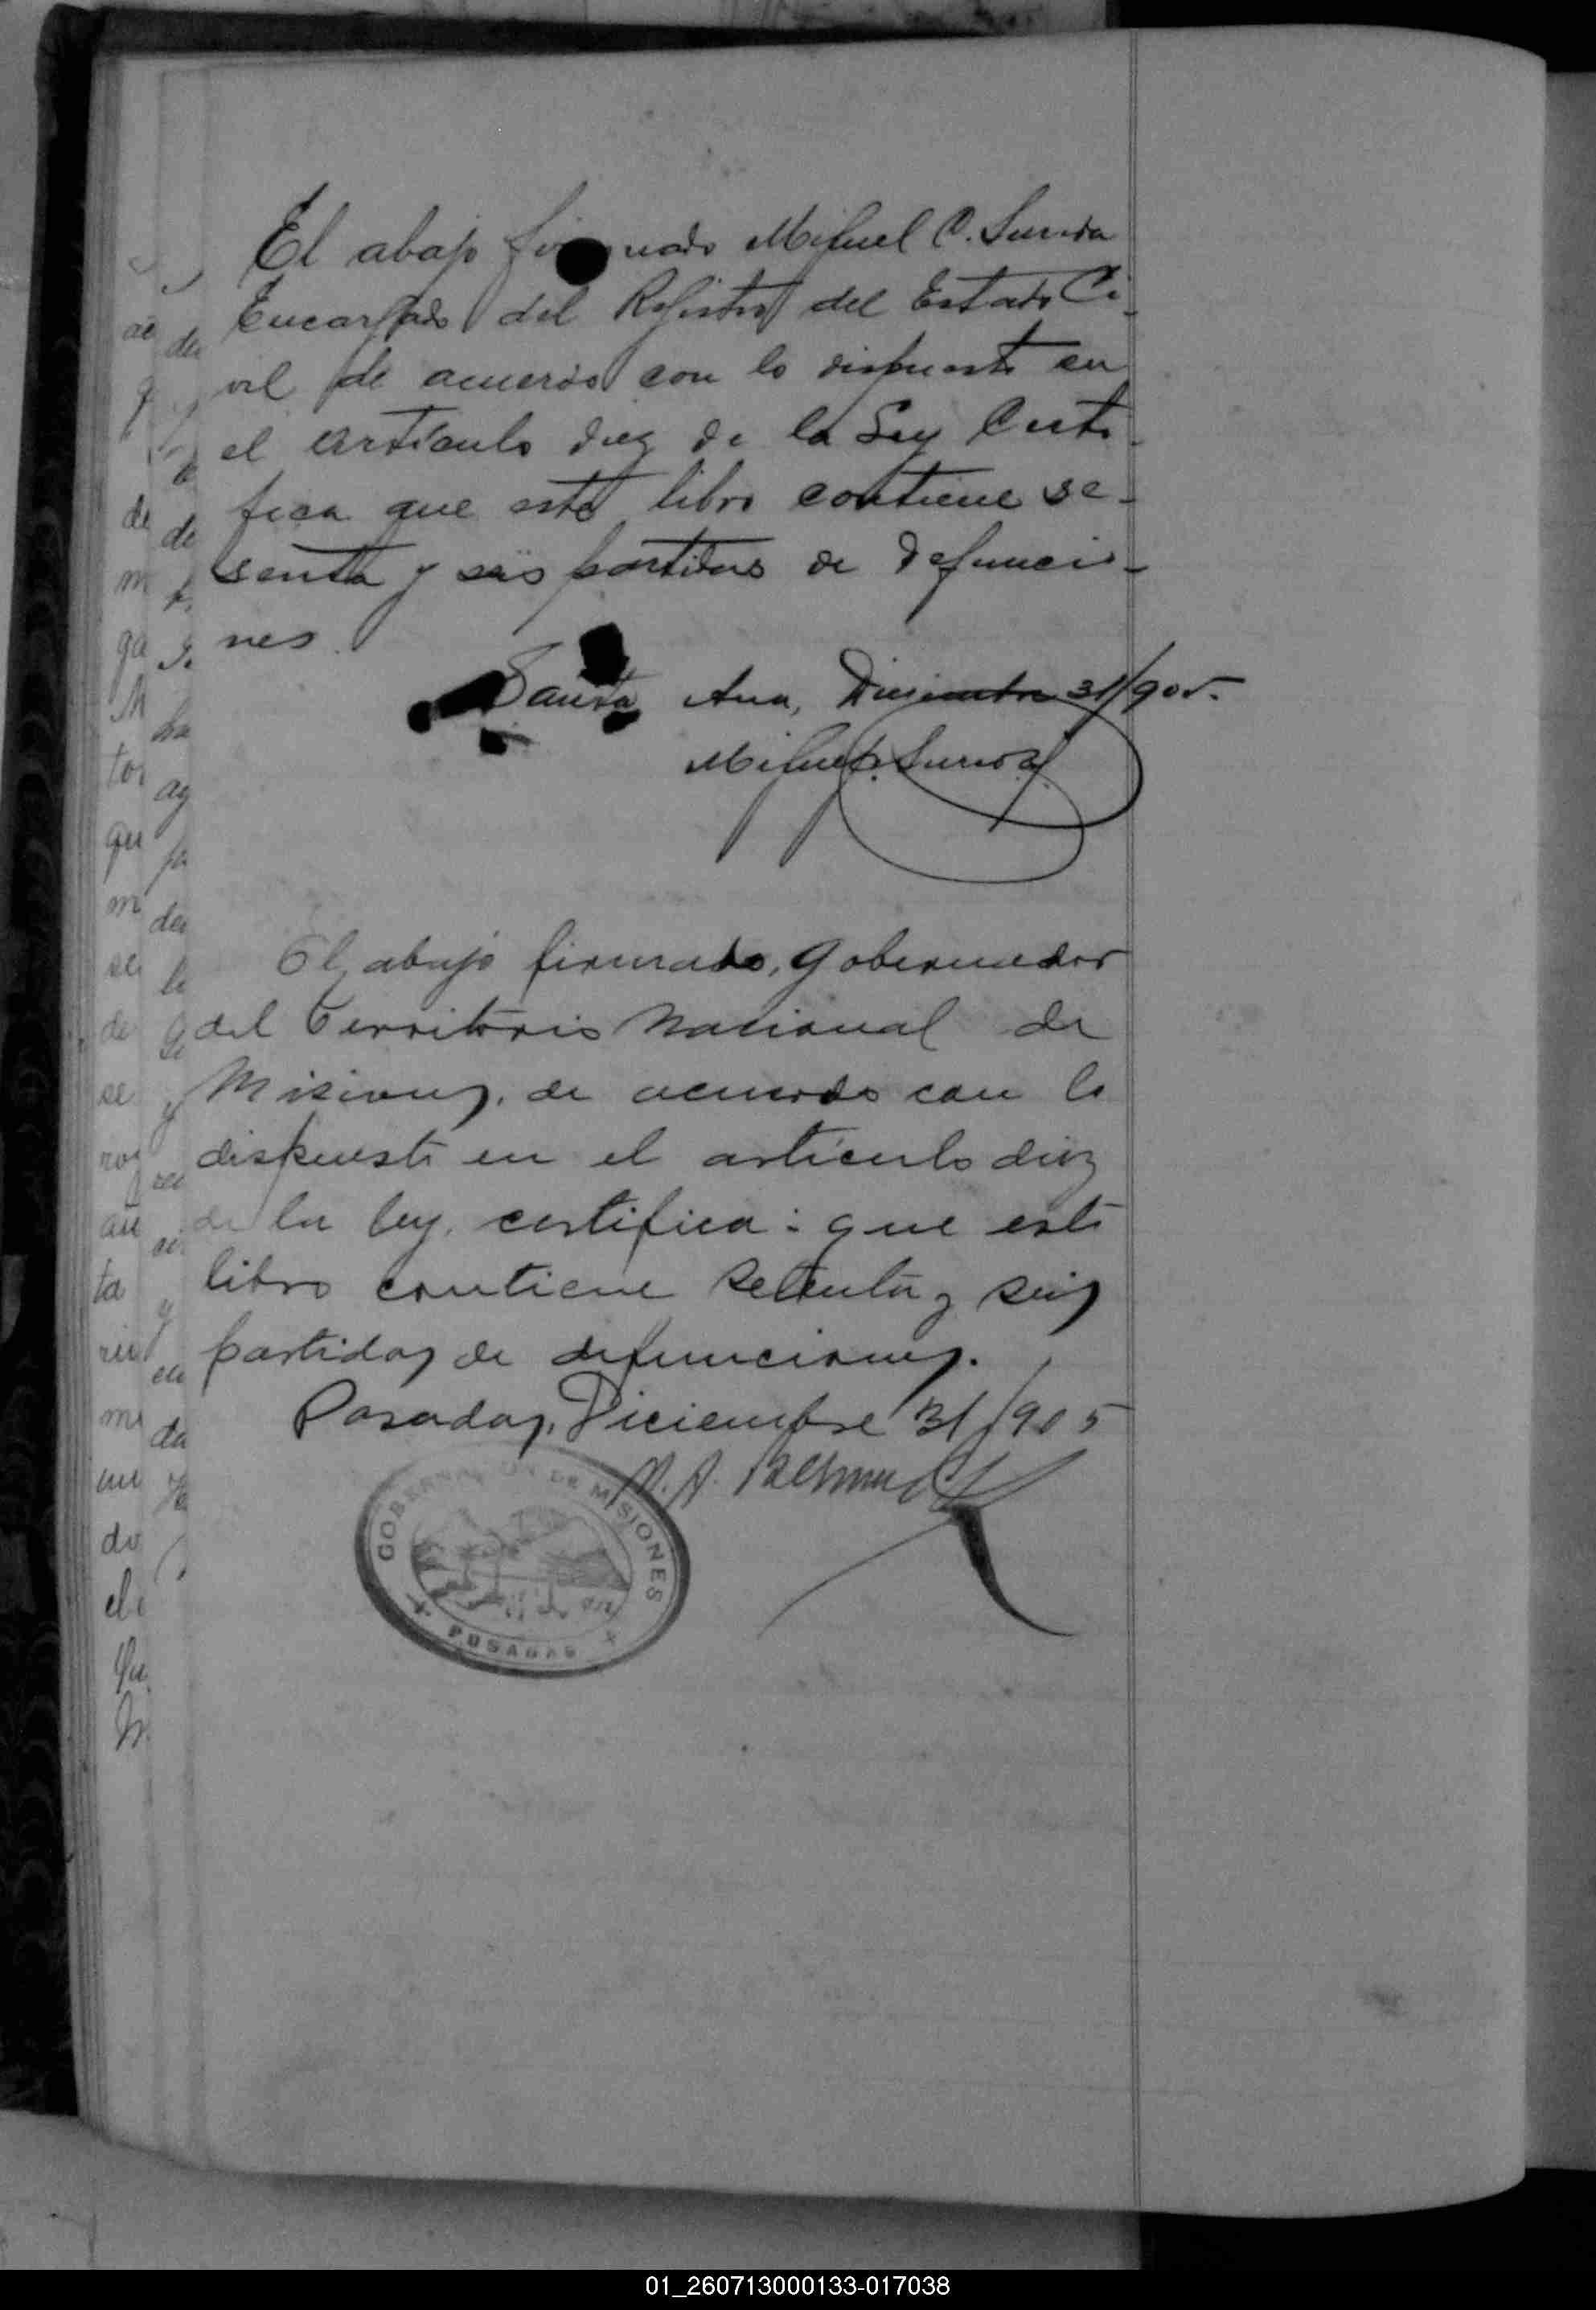 El abajo firmado Miguel C.
Encargado del Registro del Estado Ci-
vil de acuerdo con lo dispuesto en
el articulo diez de la Ley Certi-
fica que este libro contiene se-
senta y seis partidas de defuncio-
nes.
Santa Ana, Diciembre 31/905.
Miguel C.
El abajo firmado, Gobernador
del Territorio Nacional de
Misiones, de acuerdo con lo
dispuesto en el artículo diez
de la ley, certifica: que este
libro contiene setenta y seis
partidas de defunciones.
Posadas, Diciembre 31/905
GOBERNACION DE MISIONES
POSADAS
01_260713000133-017038